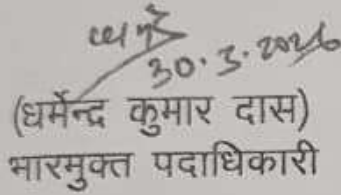 30.3.2026
(धर्मेन्द्र कुमार दास)
भारमुक्त पदाधिकारी